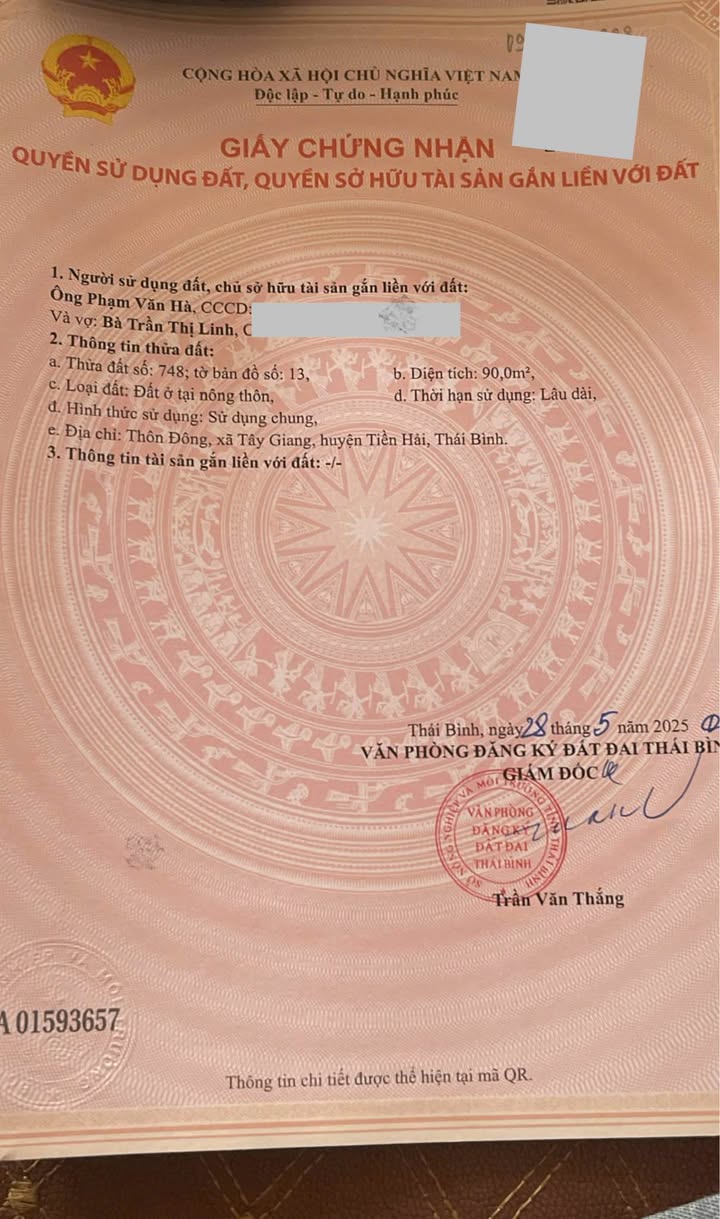 CỘNG HÒA XÃ HỘI CHỦ NGHĨA VIỆT NAM
Độc lập - Tự do - Hạnh phúc
GIẤY CHỨNG NHẬN
QUYỀN SỬ DỤNG ĐẤT, QUYỀN SỞ HỮU TÀI SẢN GẮN LIỀN VỚI ĐẤT
1. Người sử dụng đất, chủ sở hữu tài sản gắn liền với đất:
Ông Phạm Văn Hà, CCCD:
Và vợ: Bà Trần Thị Linh, C
2. Thông tin thửa đất:
a. Thửa đất số: 748; tờ bản đồ số: 13, b. Diện tích: 90,0m²,
c. Loại đất: Đất ở tại nông thôn, d. Thời hạn sử dụng: Lâu dài,
đ. Hình thức sử dụng: Sử dụng chung,
e. Địa chỉ: Thôn Đông, xã Tây Giang, huyện Tiền Hải, Thái Bình.
3. Thông tin tài sản gắn liền với đất: -/-
Thái Bình, ngày 28 tháng 5 năm 2025
VĂN PHÒNG ĐĂNG KÝ ĐẤT ĐAI THÁI BÌN
GIÁM ĐỐC
SỞ NÔNG NGHIỆP VÀ MÔI TRƯỜNG TỈNH THÁI BÌNH
VĂN PHÒNG
ĐĂNG KÝ
ĐẤT ĐAI
THÁI BÌNH
Trần Văn Thắng
A 01593657
Thông tin chi tiết được thể hiện tại mã QR.